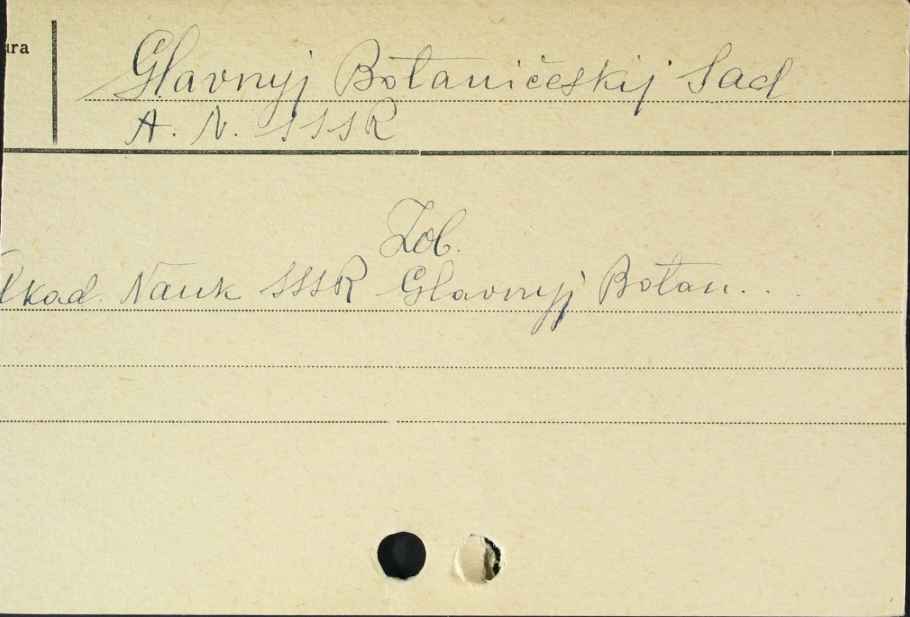 ura
Glavnyj Botaničeskij Sad
A. N. SSSR
Zob.
Akad. Nauk SSSR Glavnyj Botan...